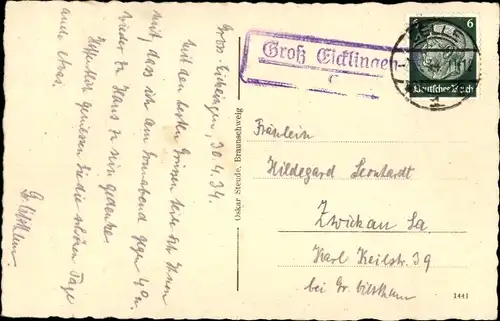 Groß Eicklingen, 30.4.34.
Mit den besten Grüssen teile ich Ihnen
mit, dass ich am Sonnabend gegen 4 Uhr
wieder zu Haus zu sein gedenke.
Hoffentlich geniessen Sie die schönen Tage
auch etwas.
Groß Eicklingen
CELLE
6
Deutsches Reich
Oskar Steude, Braunschweig
Fräulein
Hildegard Leonhardt
Zwickau Sa
Karl Keilstr. 39
bei Dr.
1441